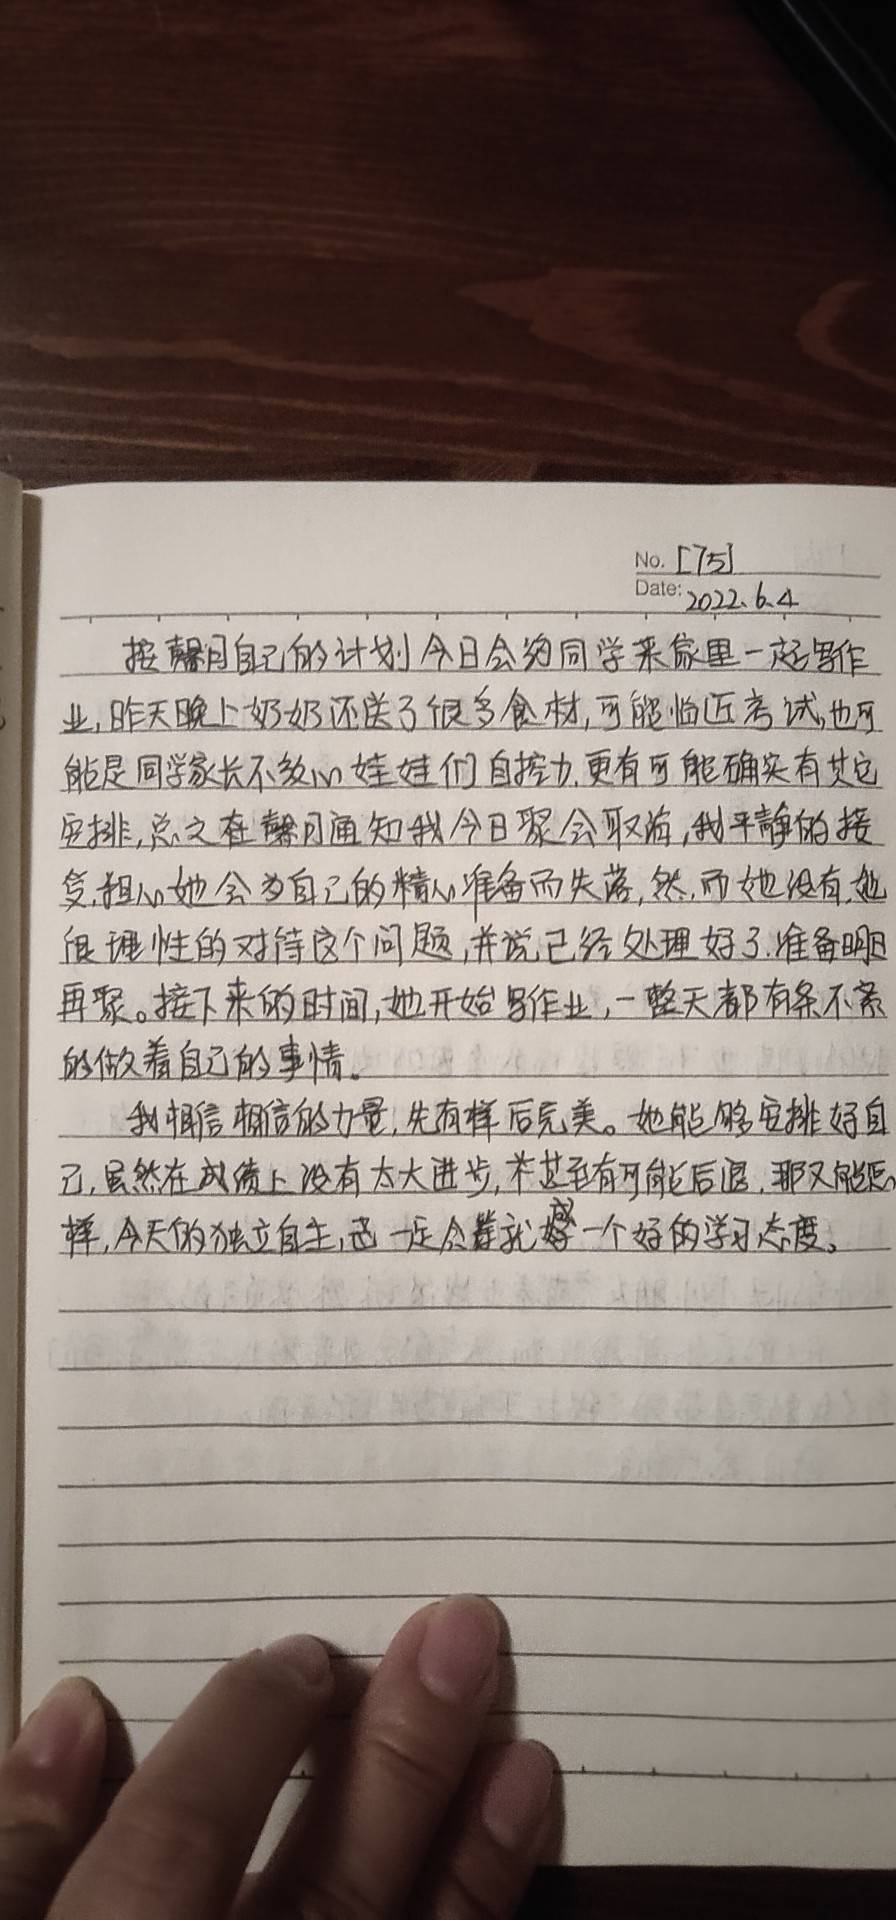 No. [75]
Date: 2022.6.4
按馨月自己的计划今日会约同学来家里一起写作
业,昨天晚上奶奶还送了很多食材,可能临近考试,也可
能是同学家长不放心娃娃们自控力,更有可能确实有其它
安排,总之在馨月通知我今日聚会取消,我平静的接
受,担心她会为自己的精心准备而失落,然,而她没有,她
很理性的对待这个问题,并说已经处理好了.准备明日
再聚。接下来的时间,她开始写作业,一整天都有条不紊
的做着自己的事情。
我相信相信的力量,先有样后完美。她能够安排好自
己,虽然在成绩上没有太大进步,甚至有可能后退,那又能怎
样,今天的独立自主,一定会养就成一个好的学习态度。